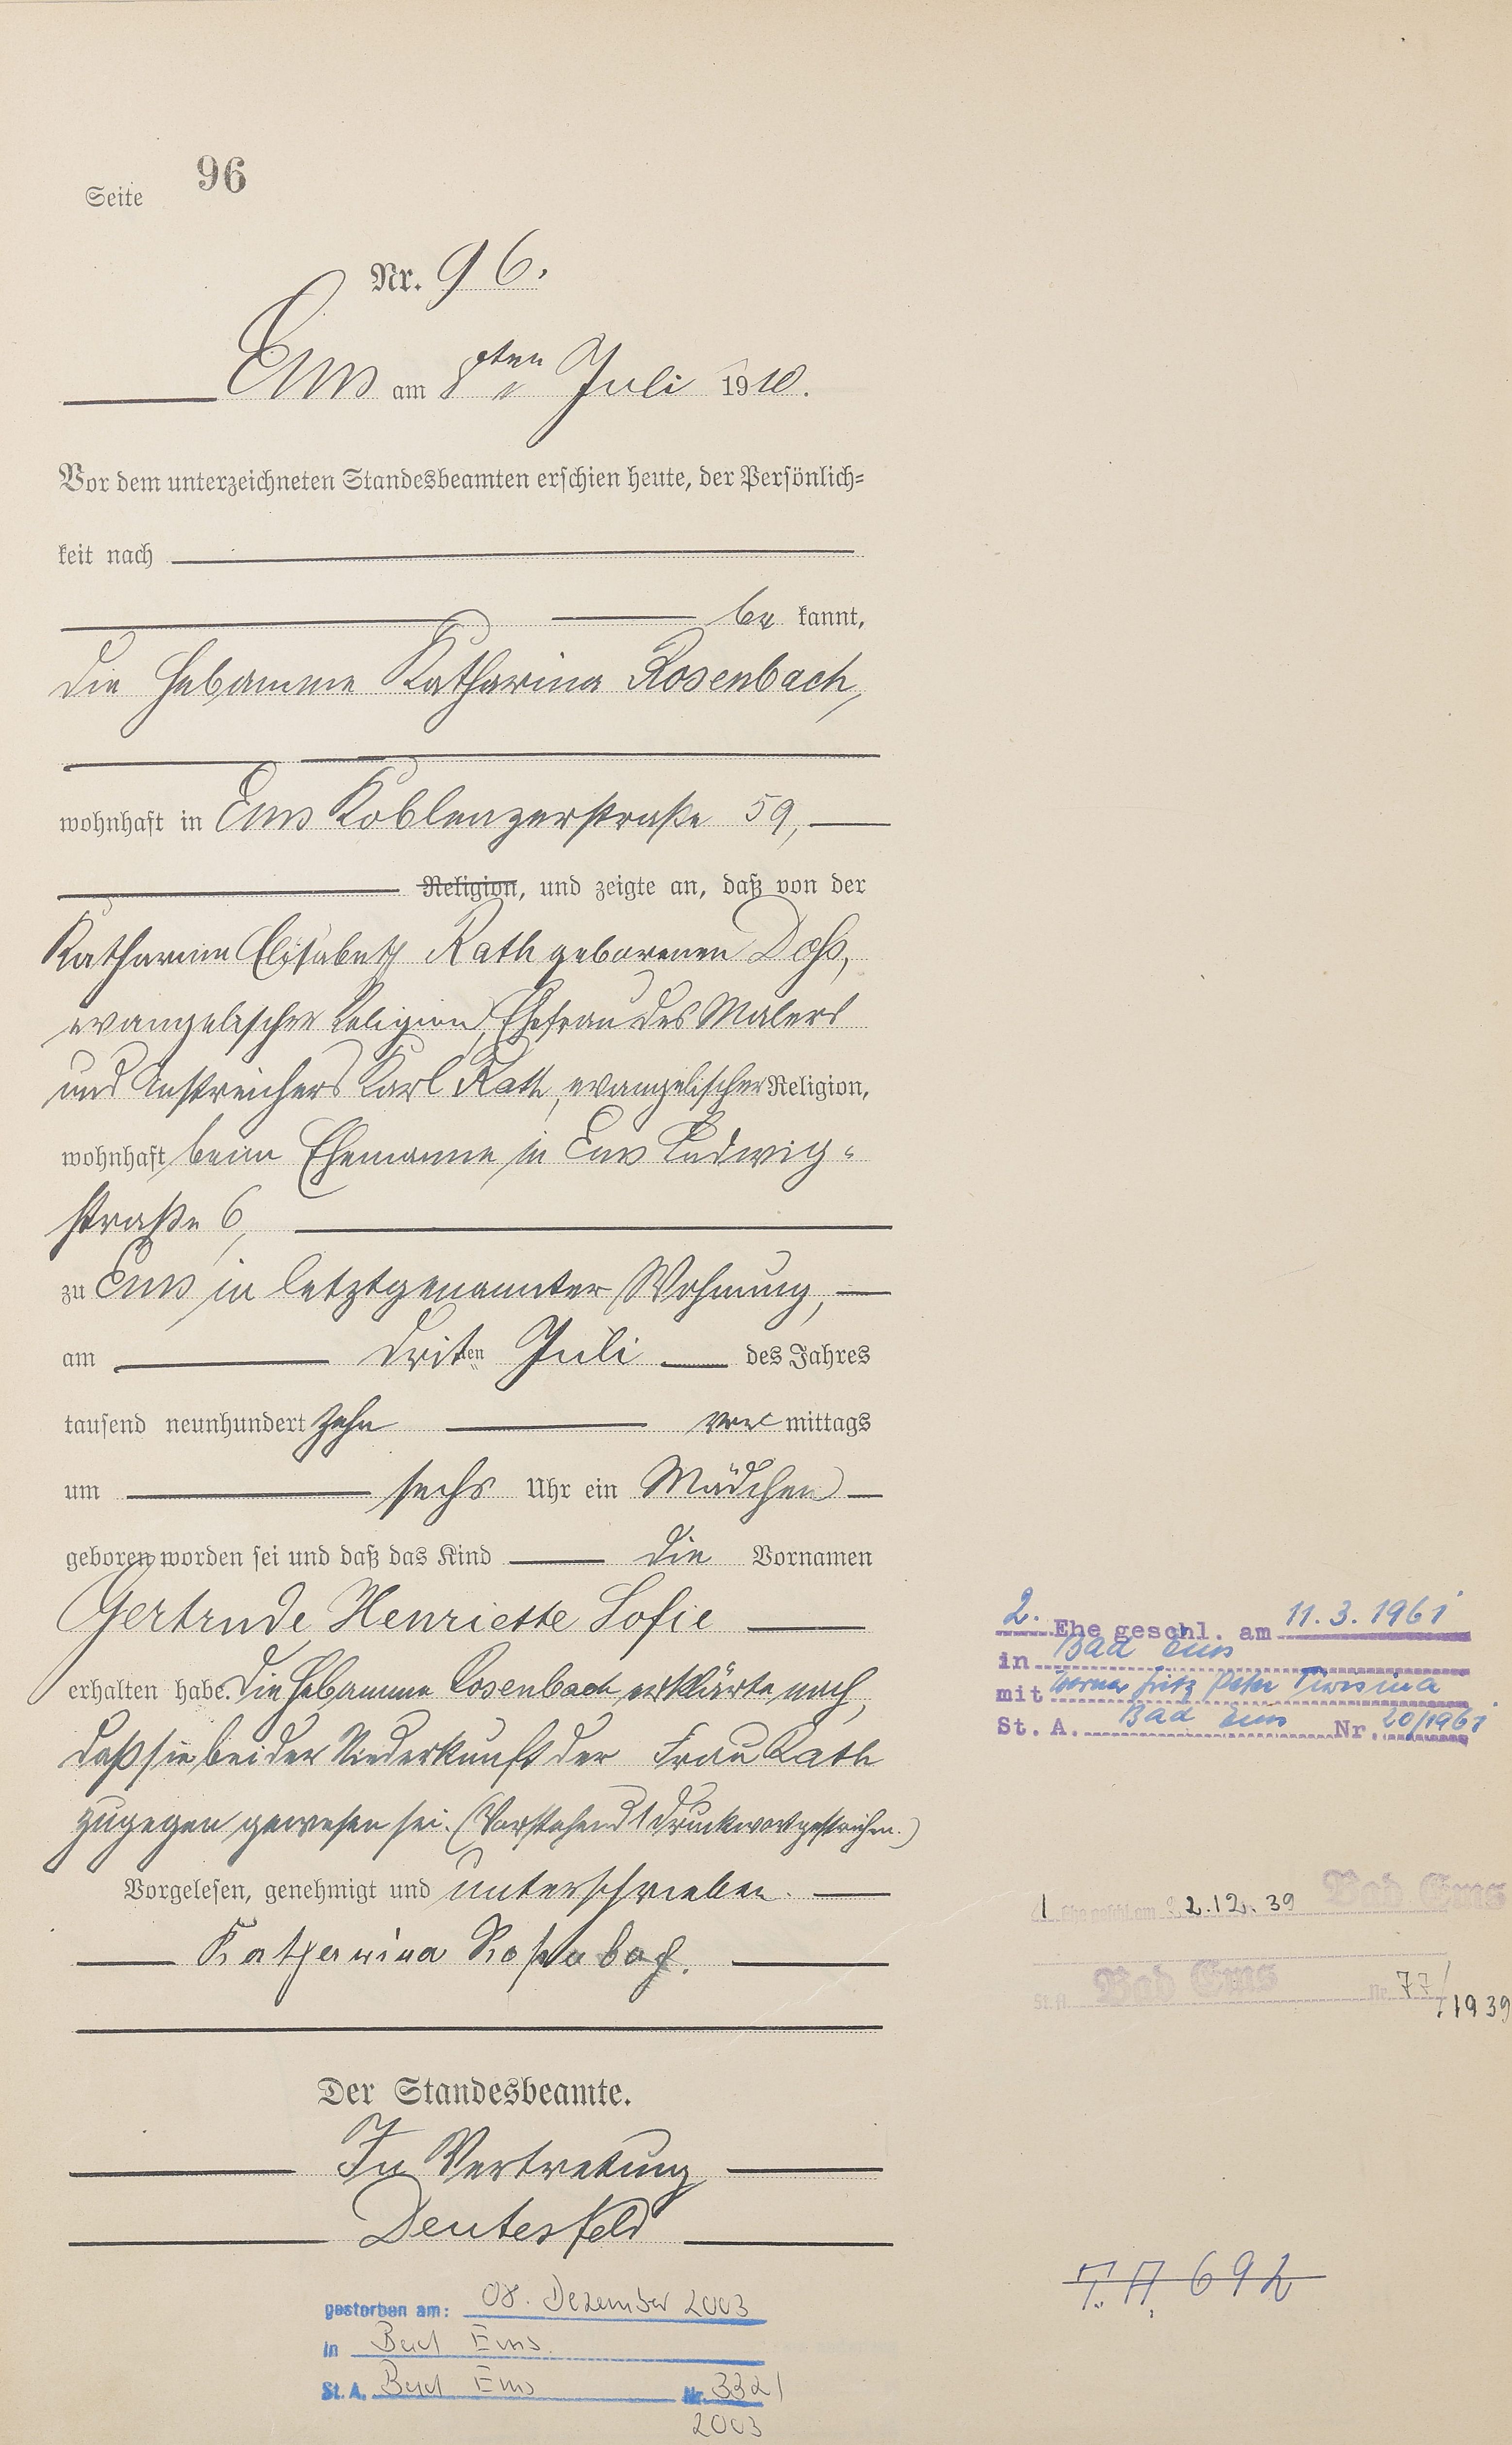 Seite 96
Nr. 96.
Ems am 8ten Juli 1910.
Vor dem unterzeichneten Standesbeamten erschien heute, der Persönlich-
keit nach
be kannt,
die Hebamme Katharina Rosenbach,
wohnhaft in Ems Koblenzerstraße 59,
Religion, und zeigte an, daß von der
Katharina Elisabeth Rath geborenen Dohs,
evangelischer Religion, Ehefrau des Malers
und Anstreichers Karl Rath, evangelischer Religion,
wohnhaft beim Ehemanne in Ems Ludwig-
straße 6,
zu Ems in letztgenannter Wohnung,
am dritten Juli des Jahres
tausend neunhundert zehn vor mittags
um sechs Uhr ein Mädchen
geboren worden sei und daß das Kind die Vornamen
Gertrude Henriette Sofie
erhalten habe. Die Hebamme Rosenbach erklärte noch,
daß sie bei der Niederkunft der Frau Rath
zugegen gewesen sei. (Vorstehend 1 Druckwort gestrichen.)
Vorgelesen, genehmigt und unterschrieben.
Katharina Rosenbach.
Der Standesbeamte.
In Vertretung
Deutesfeld
gestorben am: 08. Dezember 2003
in Bad Ems.
St. A. Bad Ems Nr. 332/
2003
2. Ehe geschl. am 11.3.1961
in Bad Ems
mit Werner Fritz Peter
St. A. Bad Ems Nr. 20/1961
1 Ehe geschl. am 22.12.39 Bad Ems
St. A. Bad Ems Nr. 77/
1939
T. A. 692